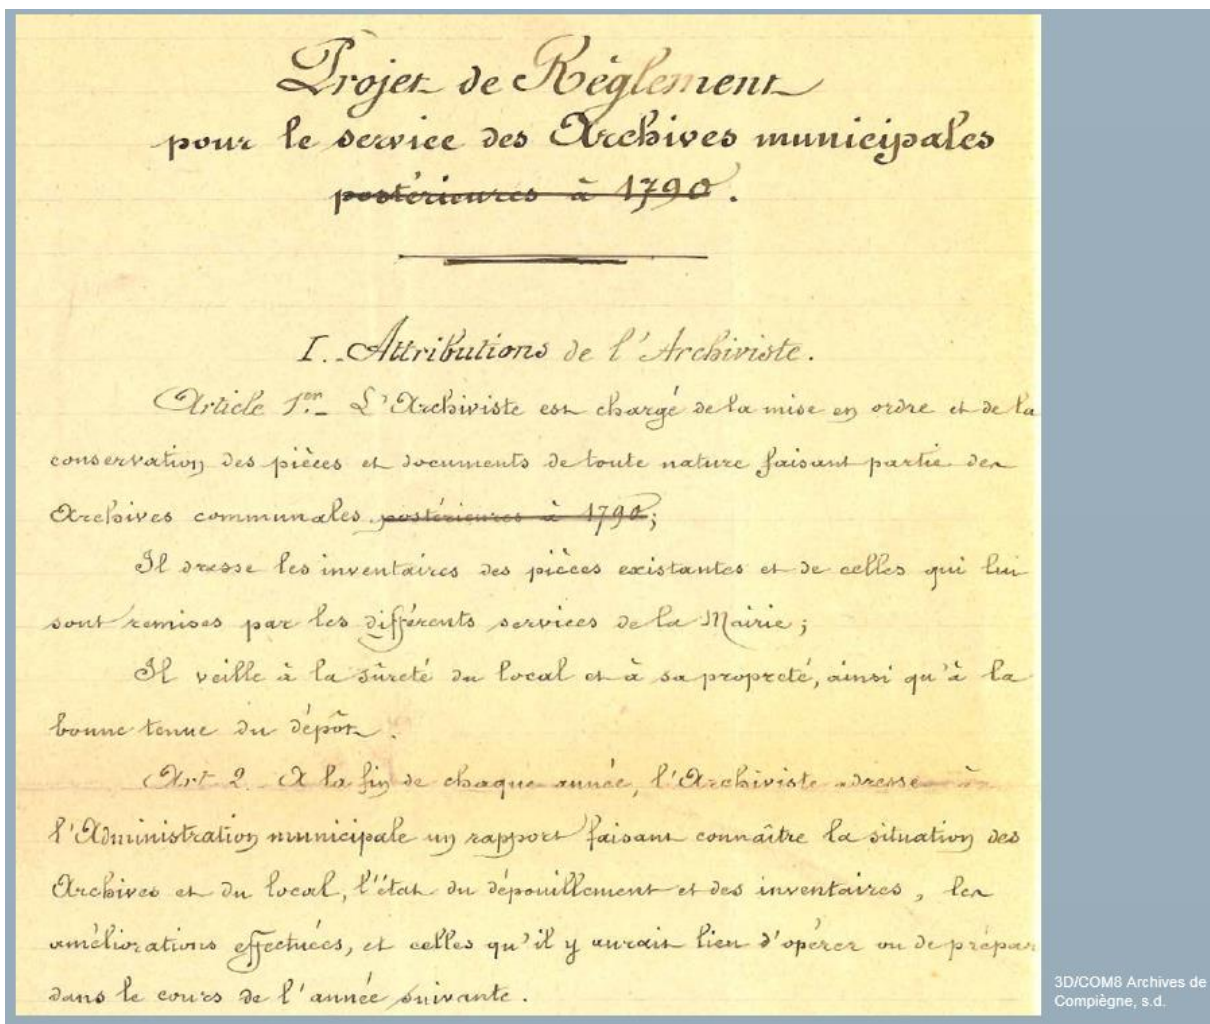 Projet de Règlement
pour le service des Archives municipales
postérieures à 1790.
I. Attributions de l'Archiviste.
Article 1er. L'Archiviste est chargé de la mise en ordre et de la
conservation des pièces et documents de toute nature faisant partie des
Archives communales postérieures à 1790;
Il dresse les inventaires des pièces existantes et de celles qui lui
sont remises par les différents services de la Mairie;
Il veille à la sûreté du local et à sa propreté, ainsi qu'à la
bonne tenue du dépôt.
Art 2. A la fin de chaque année, l'Archiviste adresse à
l'Administration municipale un rapport faisant connaître la situation des
Archives et du local, l'état du dépouillement et des inventaires, les
améliorations effectuées, et celles qu'il y aurait lieu d'opérer ou de prépar
dans le cours de l'année suivante.
3D/COM8 Archives de
Compiègne, s.d.